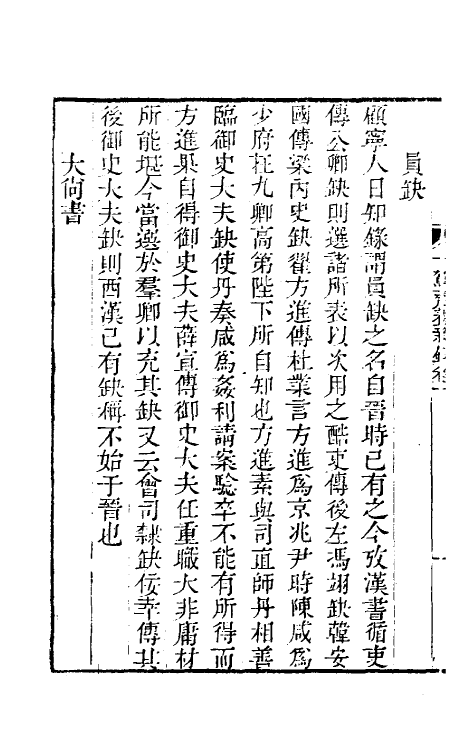 員缺
顧寧人日知錄謂員缺之名自晉時已有之今攷漢書循吏
傳公卿缺則選諸所表以次用之酷吏傳後左馮翊缺韓安
國傳梁內史缺翟方進傳杜業言方進爲京兆尹時陳咸爲
少府在九卿高第陛下所自知也方進素與司直師丹相善
臨御史大夫缺使丹奏咸爲姦利請案驗卒不能有所得而
方進果自得御史大夫薛宣傳御史大夫任重職大非庸材
所能堪今當選於羣卿以充其缺又云會司隸缺佞幸傳其
後御史大夫缺則西漢已有缺稱不始于晉也
大尙書